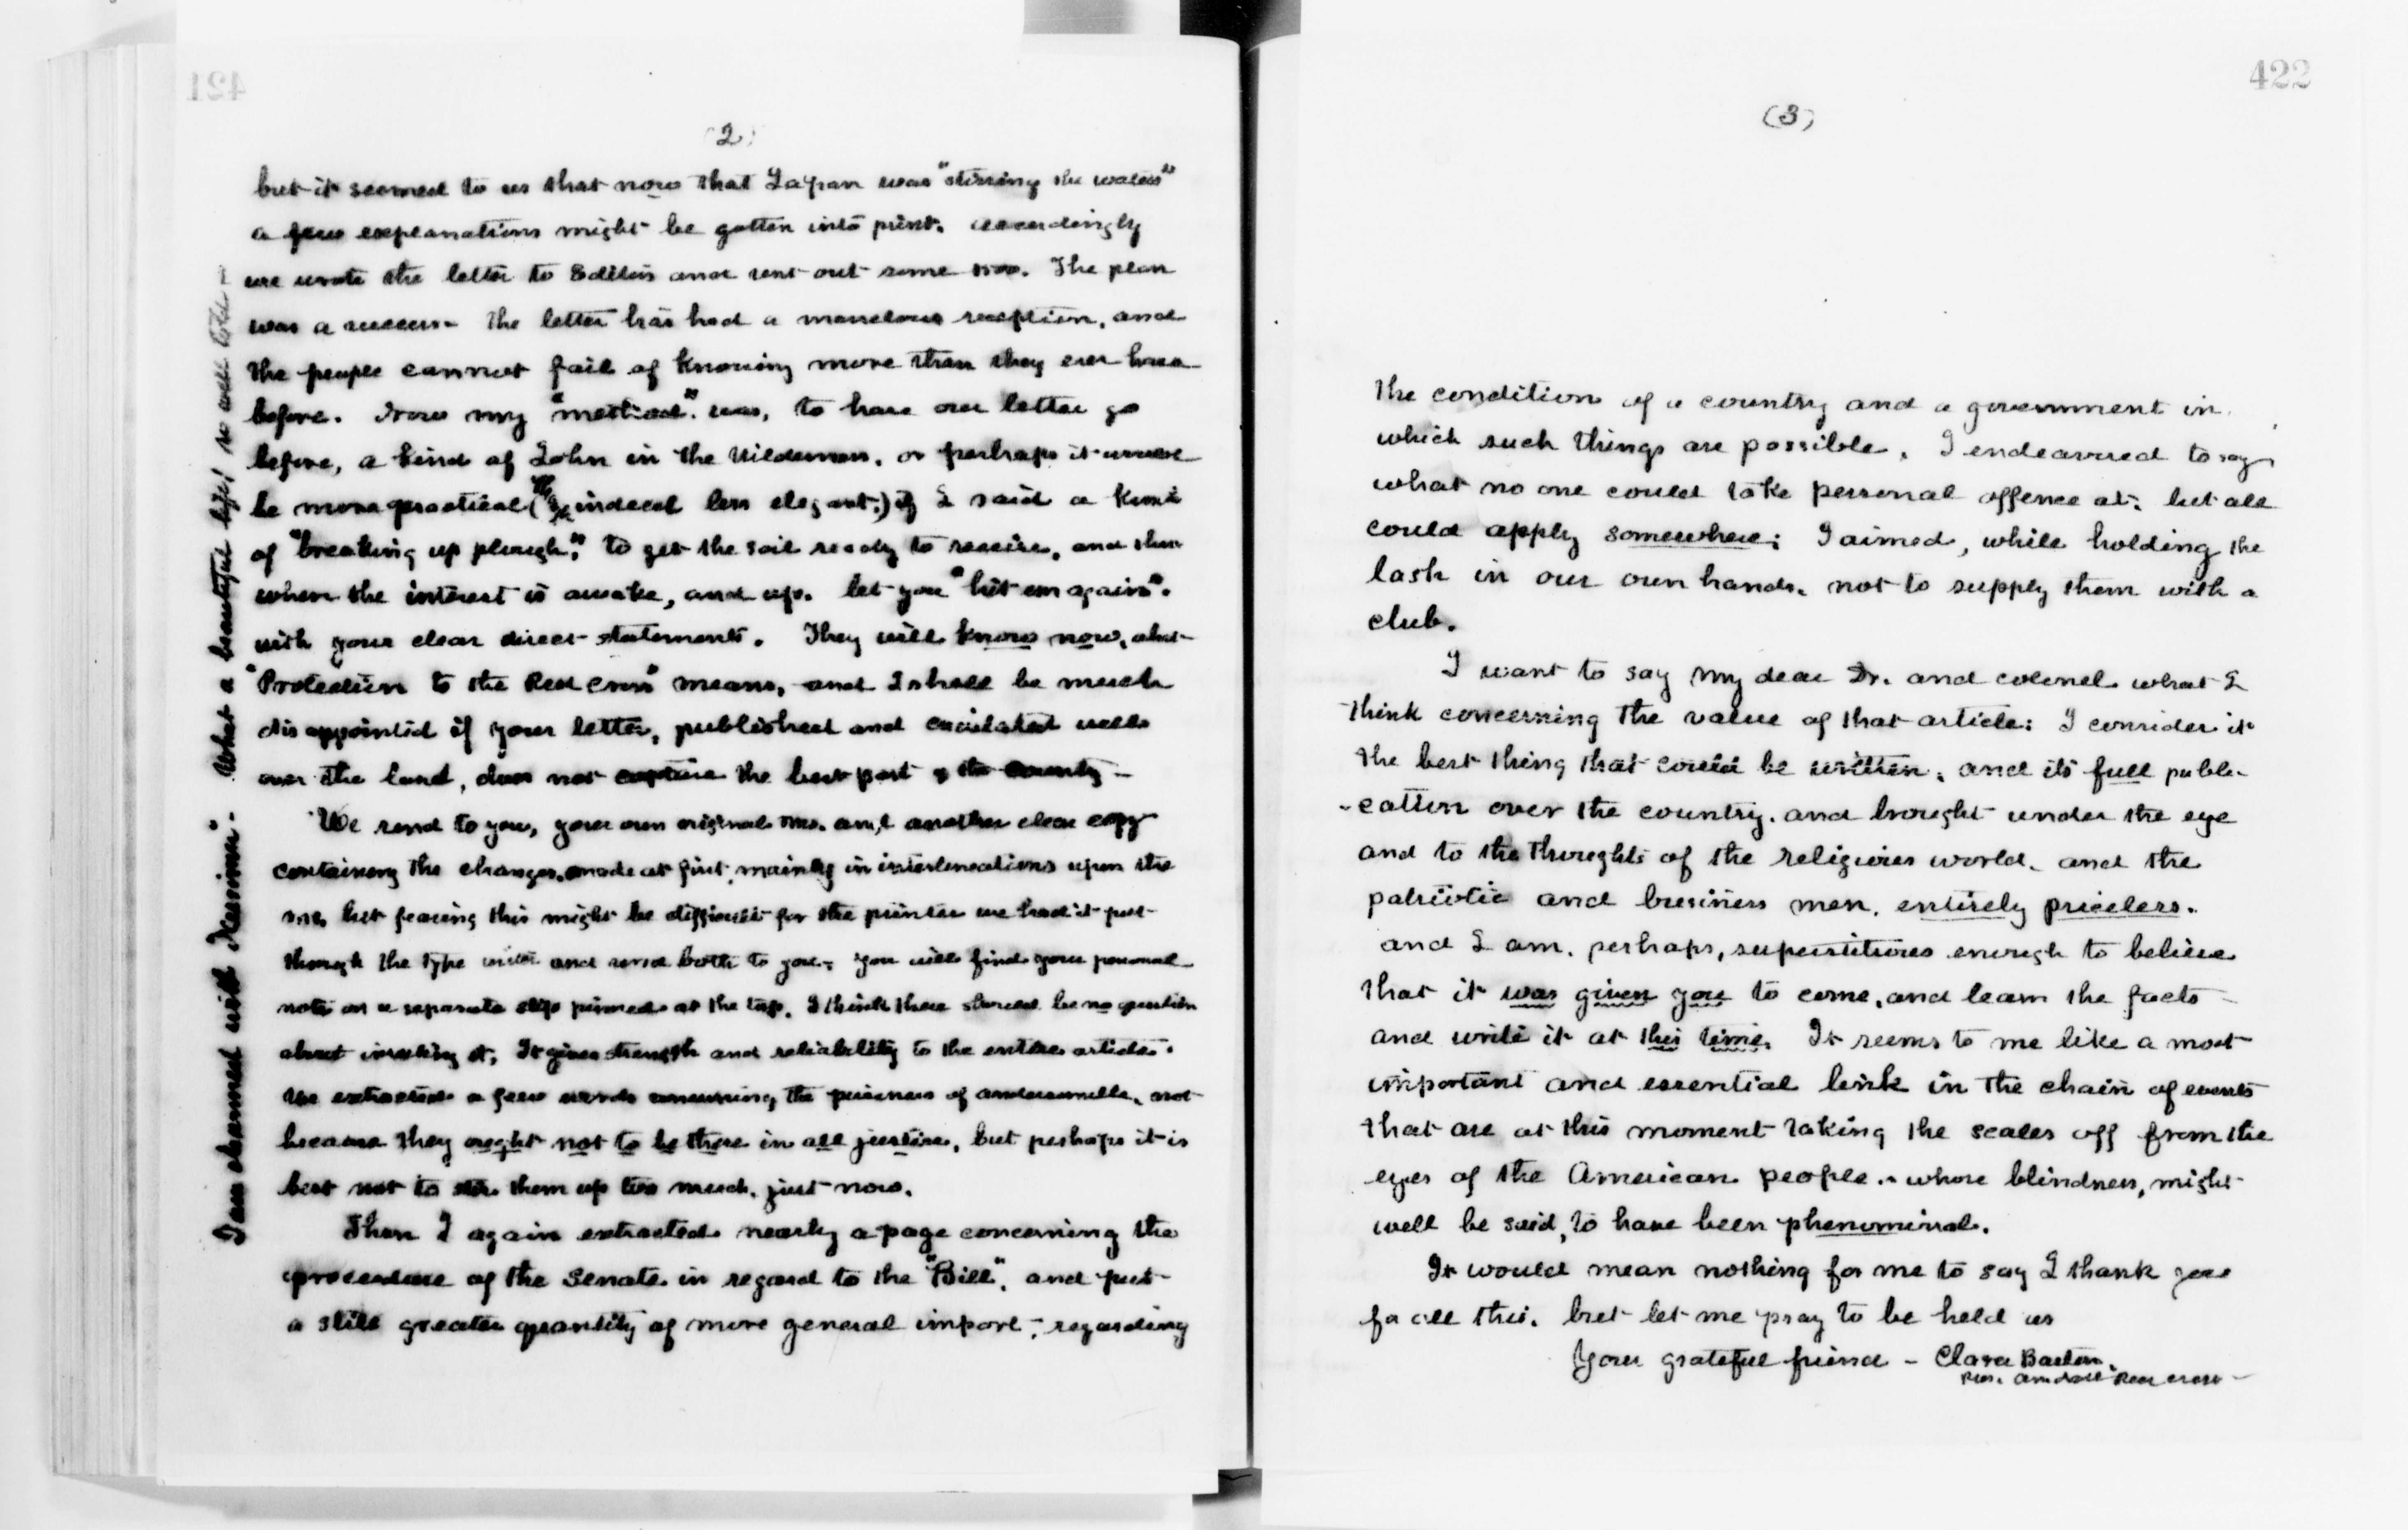 421
(2)
but it seemed to us that now that Japan was "stirring the waters"
a few explanations might be gotten into print. accordingly
we wrote the letter to Editors and sent out some The plan
was a success - the letter has had a marvelous reception, and
the people cannot fail of knowing more than they ever have
before. Now my "method" was, to have our letter go
before, a kind of John in the Wilderness, or perhaps it would
be more practical (if indeed less elegant.) if I said a kind
of "breaking up plough", to get the soil ready to receive, and then
when the interest is awake, and up. let you "hit em again".
with your clear direct statements. They will know now, what
"Protection to the Red Cross" means, and I shall be much
disappointed if your letter, published and circulated well
over the land, does not capture the best part of the County -
We send to you, your own original ms. and another clear copy
containing the changes, made at first, mainly in interlineations upon the
ms. but fearing this might be difficult for the printer we had it put
through the type writer and send both to you - you will find your personal
note on a separate slip pinned at the top. I think there should be no question
about inserting it, It gives strength and reliability to the entire article.
We extracted a few words concerning the prisoners of andersonville, not
because they ought not to be there in all justice, but perhaps it is
best not to stir them up too much, just now.
Then I again extracted nearly a page concerning the
procedure of the Senate in regard to the "Bill", and put
a still greater quantity of more general import; regarding
I am charmed with "Jessima". What a beautiful life! so well told -
422
(3)
the condition of a country and a government in
which such things are possible. I endeavored to say
what no one could take personal offence at; but all
could apply somewhere; I aimed, while holding the
lash in our own hands, not to supply them with a
club.
I want to say my dear Dr. and colonel what I
think concerning the value of that article: I consider it
the best thing that could be written, and its full publi-
-cation over the country, and brought under the eye
and to the thoughts of the religious world, and the
patriotic and business men, entirely priceless.
and I am, perhaps, superstitious enough to believe
that it was given you to come, and learn the facts
and write it at this time. It seems to me like a most
important and essential link in the chain of events
that are at this moment taking the scales off from the
eyes of the American people - whose blindness, might
well be said, to have been phenominal.
It would mean nothing for me to say I thank you
for all this, but let me pray to be held as
Your grateful friend - Clara Barton.
Pres. Am. Natl Red Cross -